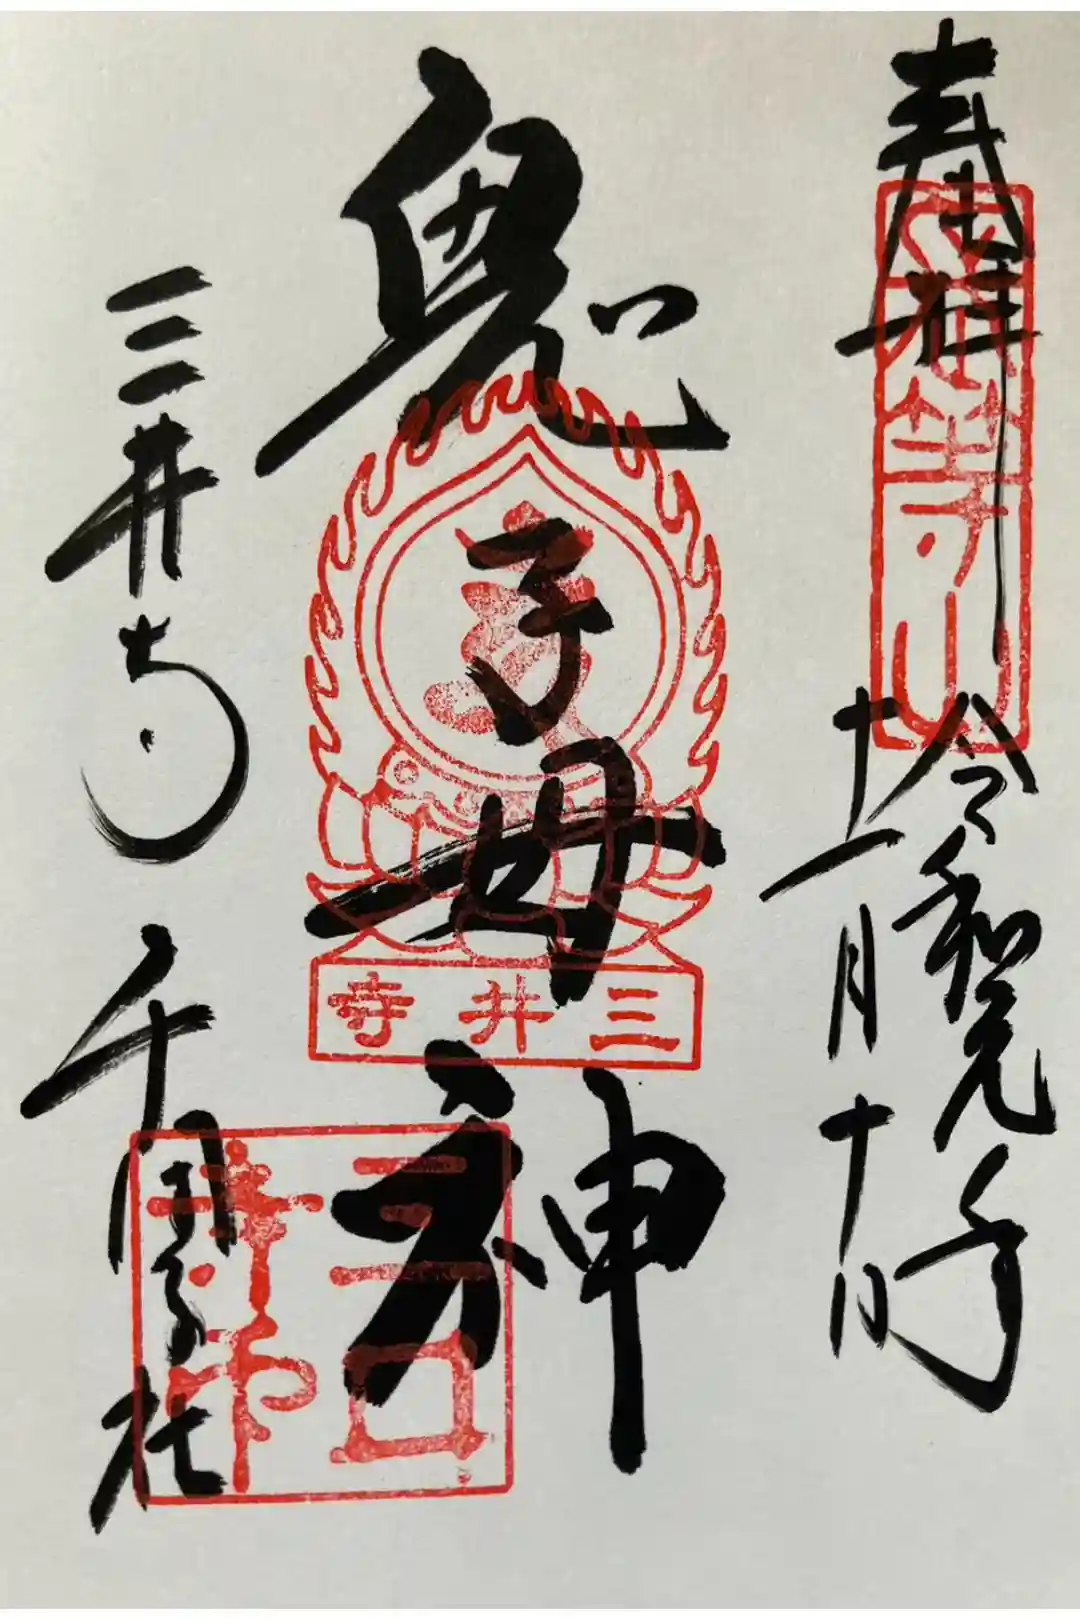 奉拝
令和元年
十一月十日
鬼子母神
三井寺
三井寺
千団子社